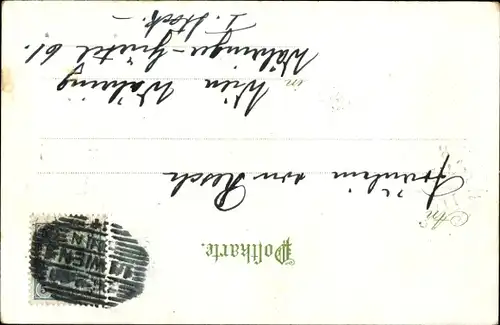 Postkarte.
An
Fräulein von Resch
in Wien Währing
Währinger-Gürtel 61.
I. Stock.-
WIEN